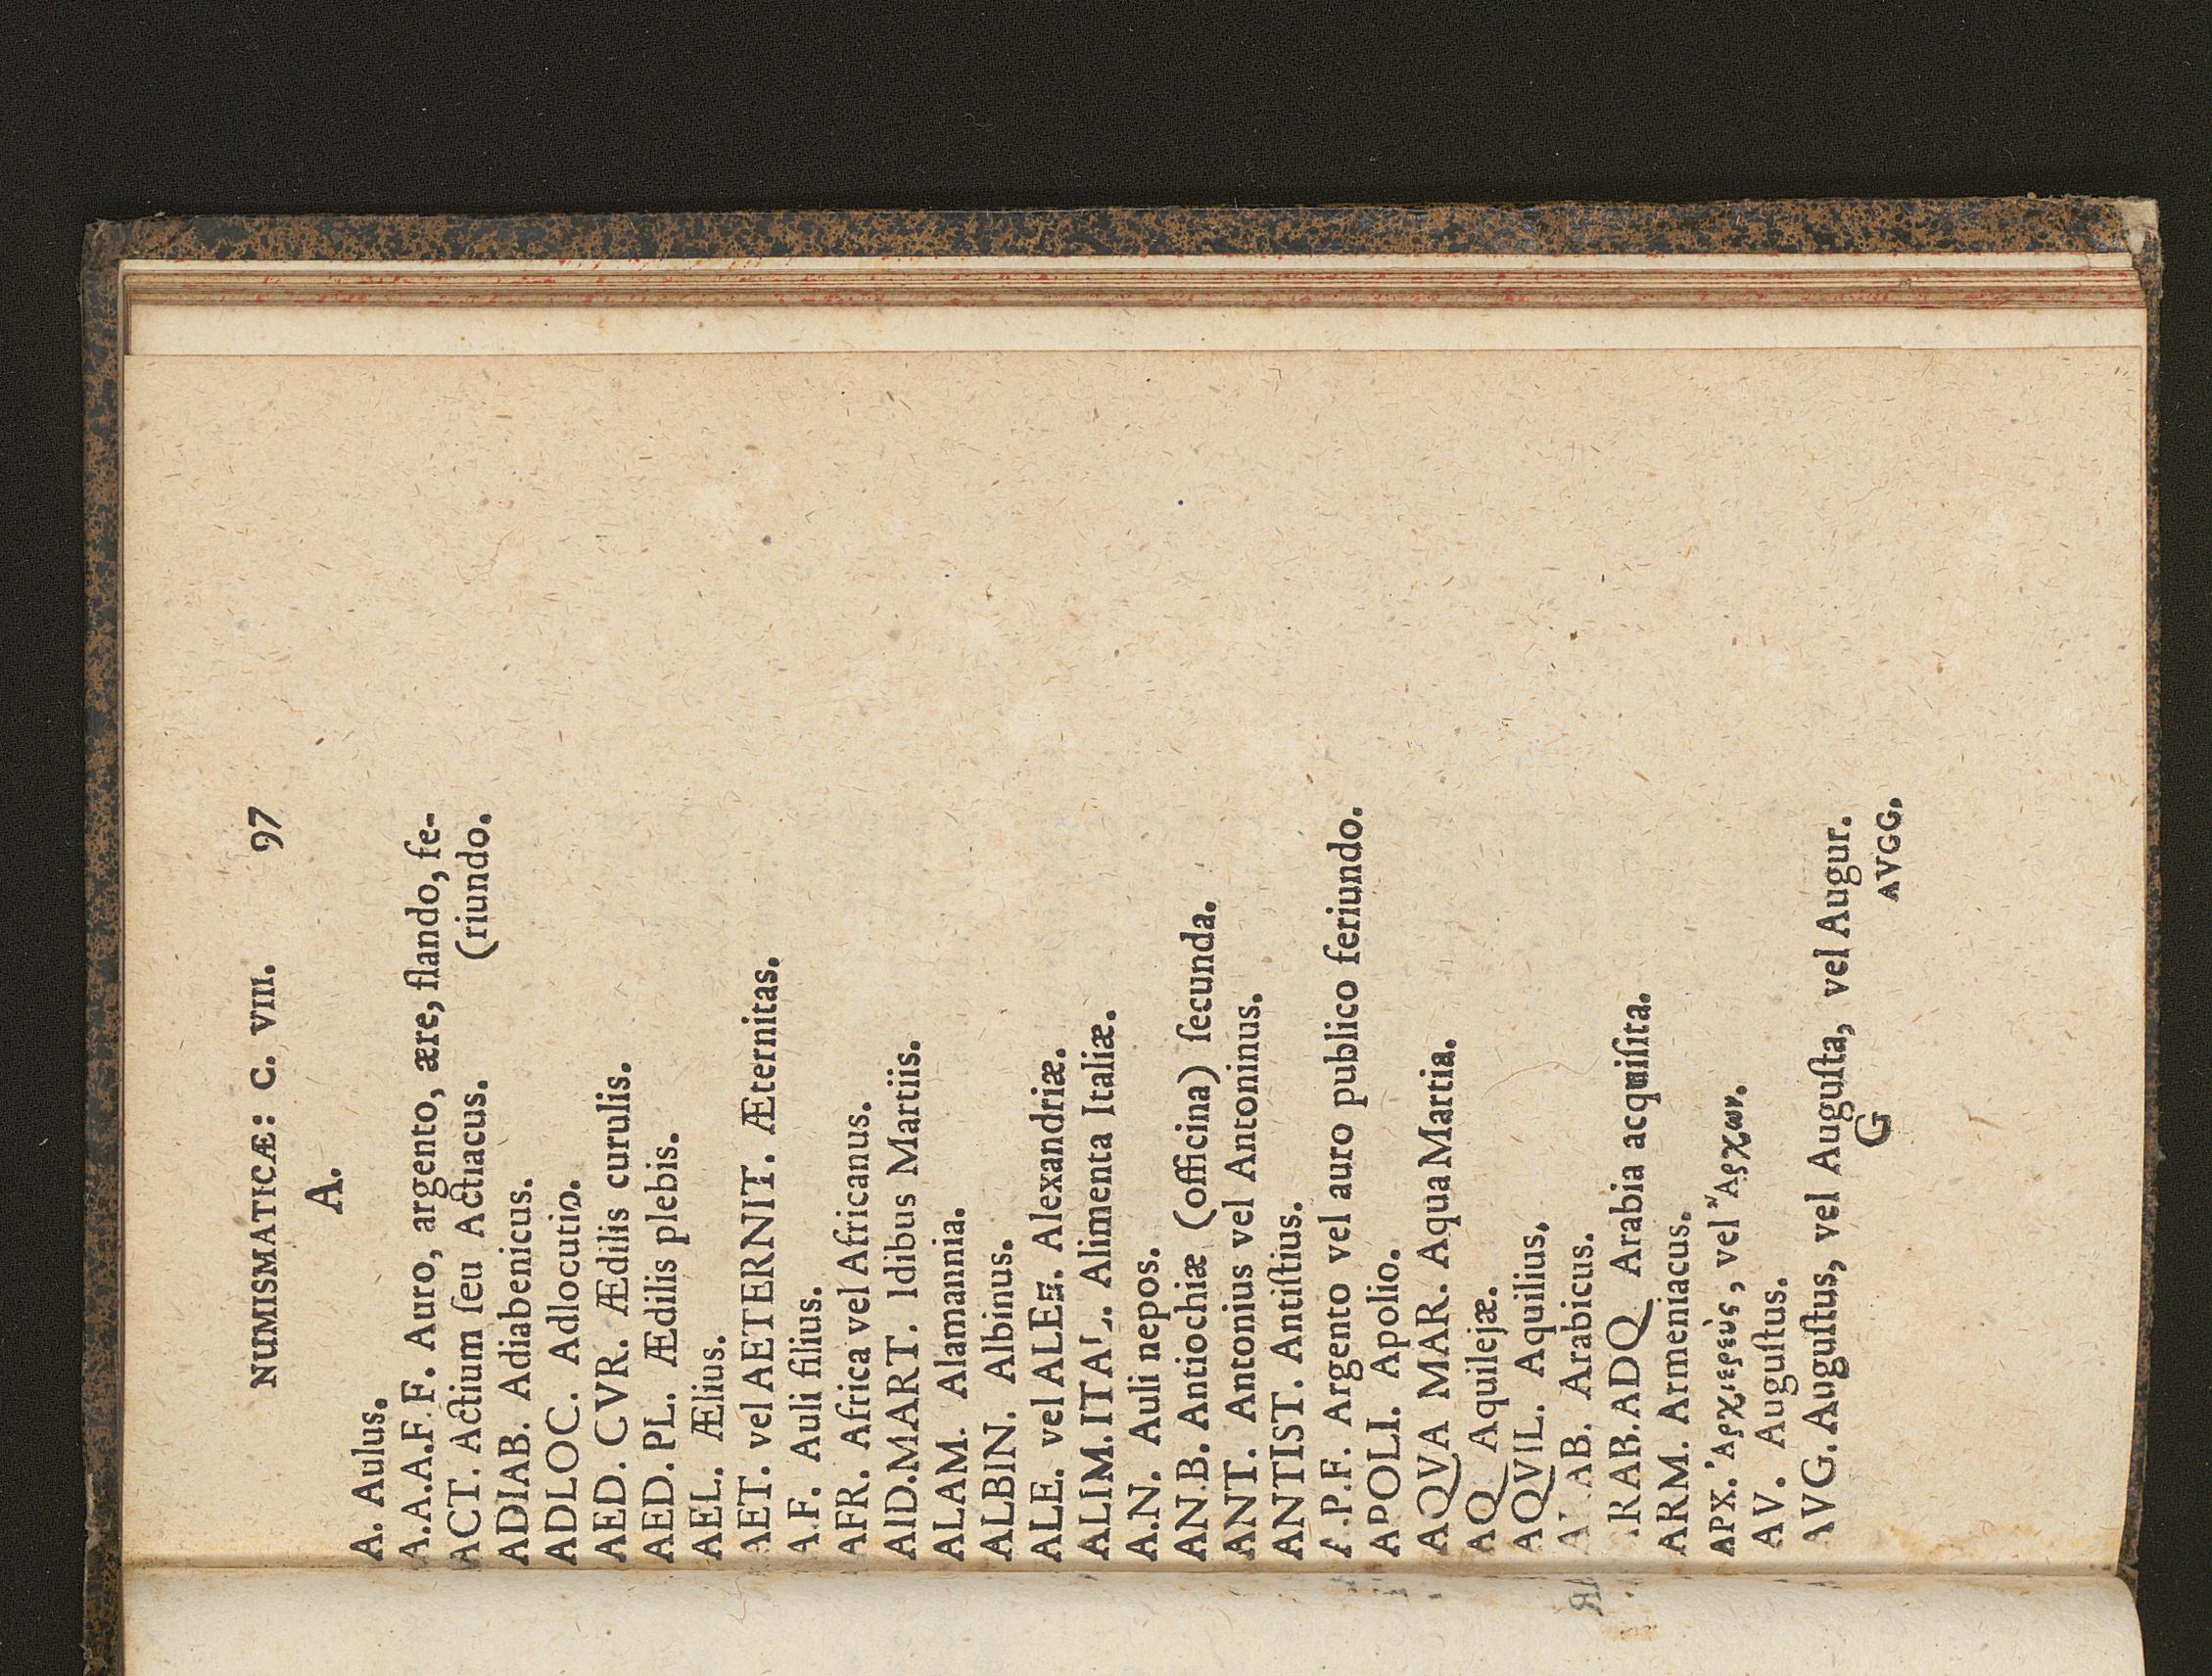 NUMISMATICÆ: C. VIII. 97
A.
A. Aulus.
A.A.A.F F. Auro, argento, ære, flando, fe-
ACT. Actium ſeu Actiacus. (riundo.
ADIAB. Adiabenicus.
ADLOC. Adlocutio.
AED. CVR. Ædilis curulis.
AED. PL. Ædilis plebis.
AEL. Ælius.
AET. vel AETERNIT. Æternitas.
A.F. Auli filius.
AFR. Africa vel Africanus.
AID.MART. Idibus Martiis.
ALAM. Alamannia.
ALBIN. Albinus.
ALE. vel ALEΞ. Alexandriæ.
ALIM.ITAL. Alimenta Italiæ.
A.N. Auli nepos.
AN.B. Antiochiæ (officina) ſecunda.
ANT. Antonius vel Antoninus.
ANTIST. Antiſtius.
A.P.F. Argento vel auro publico feriundo.
APOLI. Apolio.
AQVA MAR. Aqua Martia.
AQ Aquilejæ.
AQVIL. Aquilius.
ARAB. Arabicus.
ARAB.ADQ Arabia acquiſita.
ARM. Armeniacus.
APX. Ἀρχιερεὺς, vel Ἄρχων.
AV. Auguſtus.
AVG. Auguſtus, vel Auguſta, vel Augur.
G AVGG.